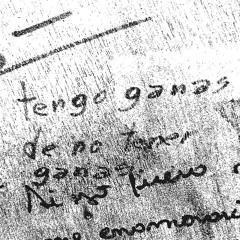 tengo ganas
de no tener
ganas
Ni no quiero
me enamorari